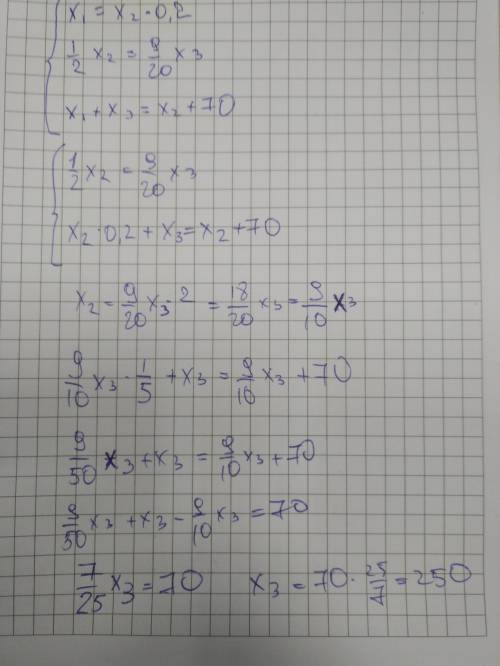 x₁ = x₂ · 0,2
1/2 x₂ = 9/20 x₃
x₁ + x₃ = x₂ + 70
1/2 x₂ = 9/20 x₃
x₂ · 0,2 + x₃ = x₂ + 70
x₂ = 9/20 x₃ · 2 = 18/20 x₃ = 9/10 x₃
9/10 x₃ · 1/5 + x₃ = 9/10 x₃ + 70
9/50 x₃ + x₃ = 9/10 x₃ + 70
9/50 x₃ + x₃ - 9/10 x₃ = 70
7/25 x₃ = 70 x₃ = 70 · 25/7 = 250